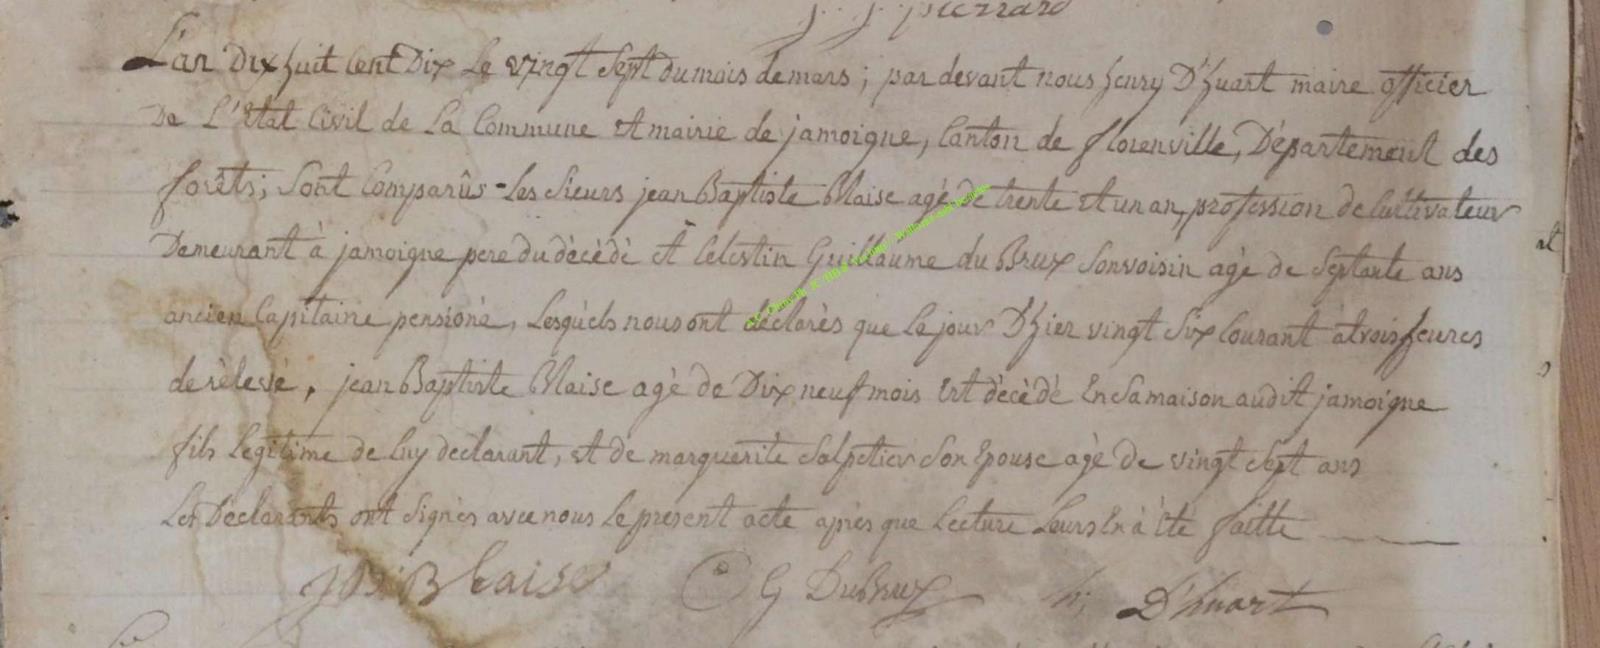 J. J. pierrard
L'an Dix huit Cent Dix Le vingt Sept du mois de mars ; par devant nous henry D'huart maire officier
De L'Etat Civil de La Commune Et mairie de jamoigne, Canton de florenville, Département des
forêts; Sont Comparûs - Les Sieurs jean Baptiste Blaise agé de trente et un an, profession de Cultivateur
Demeurant à jamoigne pere du décédé et Celestin Guillaume du Brux Son voisin agé de Septante ans
ancien Capitaine pensioné, Lesquels nous ont déclarés que Le jour D'hier vingt Six Courant à trois heures
de rélevé, jean Baptiste Blaise agé de Dix neuf mois Est décédé En Sa maison audit jamoigne
fils Legitime de Luy declarant, et de marguerite Salpetier Son Epouse agé de vingt Sept ans
Les Déclarants ont Signés avec nous Le present acte après que Lecture Leurs En à Eté faitte
Blaise C G DuBrux h; D'huart